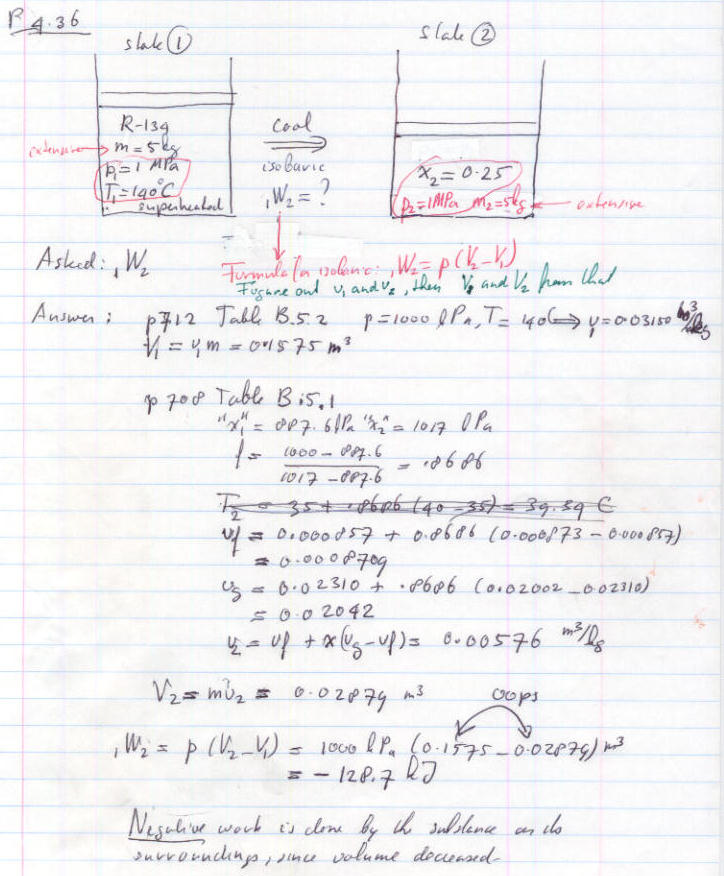 P 4.36
state ①
state ②
R-134
extensive → m = 5 kg
p₁ = 1 MPa
T₁ = 140°C
superheated
Cool
isobaric
₁W₂ = ?
x₂ = 0.25
p₂ = 1 MPa m₂ = 5 kg ← extensive
Asked: ₁W₂
Formula for isobaric: ₁W₂ = p (V₂ - V₁)
Figure out v₁ and v₂, then V₁ and V₂ from that
Answer: p712 Table B.5.2 p = 1000 kPa, T = 140 ⟹ v₁ = 0.03150 m³/kg
V₁ = v₁ m = 0.1575 m³
p 708 Table B.5.1
"x₁" = 887.6 kPa "x₂" = 1017 kPa
f = (1000 - 887.6) / (1017 - 887.6) = .8686
T₂ = 35 + .8686 (40 - 35) = 39.34 C
vf = 0.000857 + 0.8686 (0.000873 - 0.000857)
= 0.0008709
vg = 0.02310 + .8686 (0.02002 - 0.02310)
= 0.02042
v₂ = vf + x(vg - vf) = 0.00576 m³/kg
V₂ = m v₂ = 0.02879 m³
oops
₁W₂ = p (V₂ - V₁) = 1000 kPa (0.1575 - 0.02879) m³
= - 128.7 kJ
Negative work is done by the substance on its
surroundings, since volume decreased.